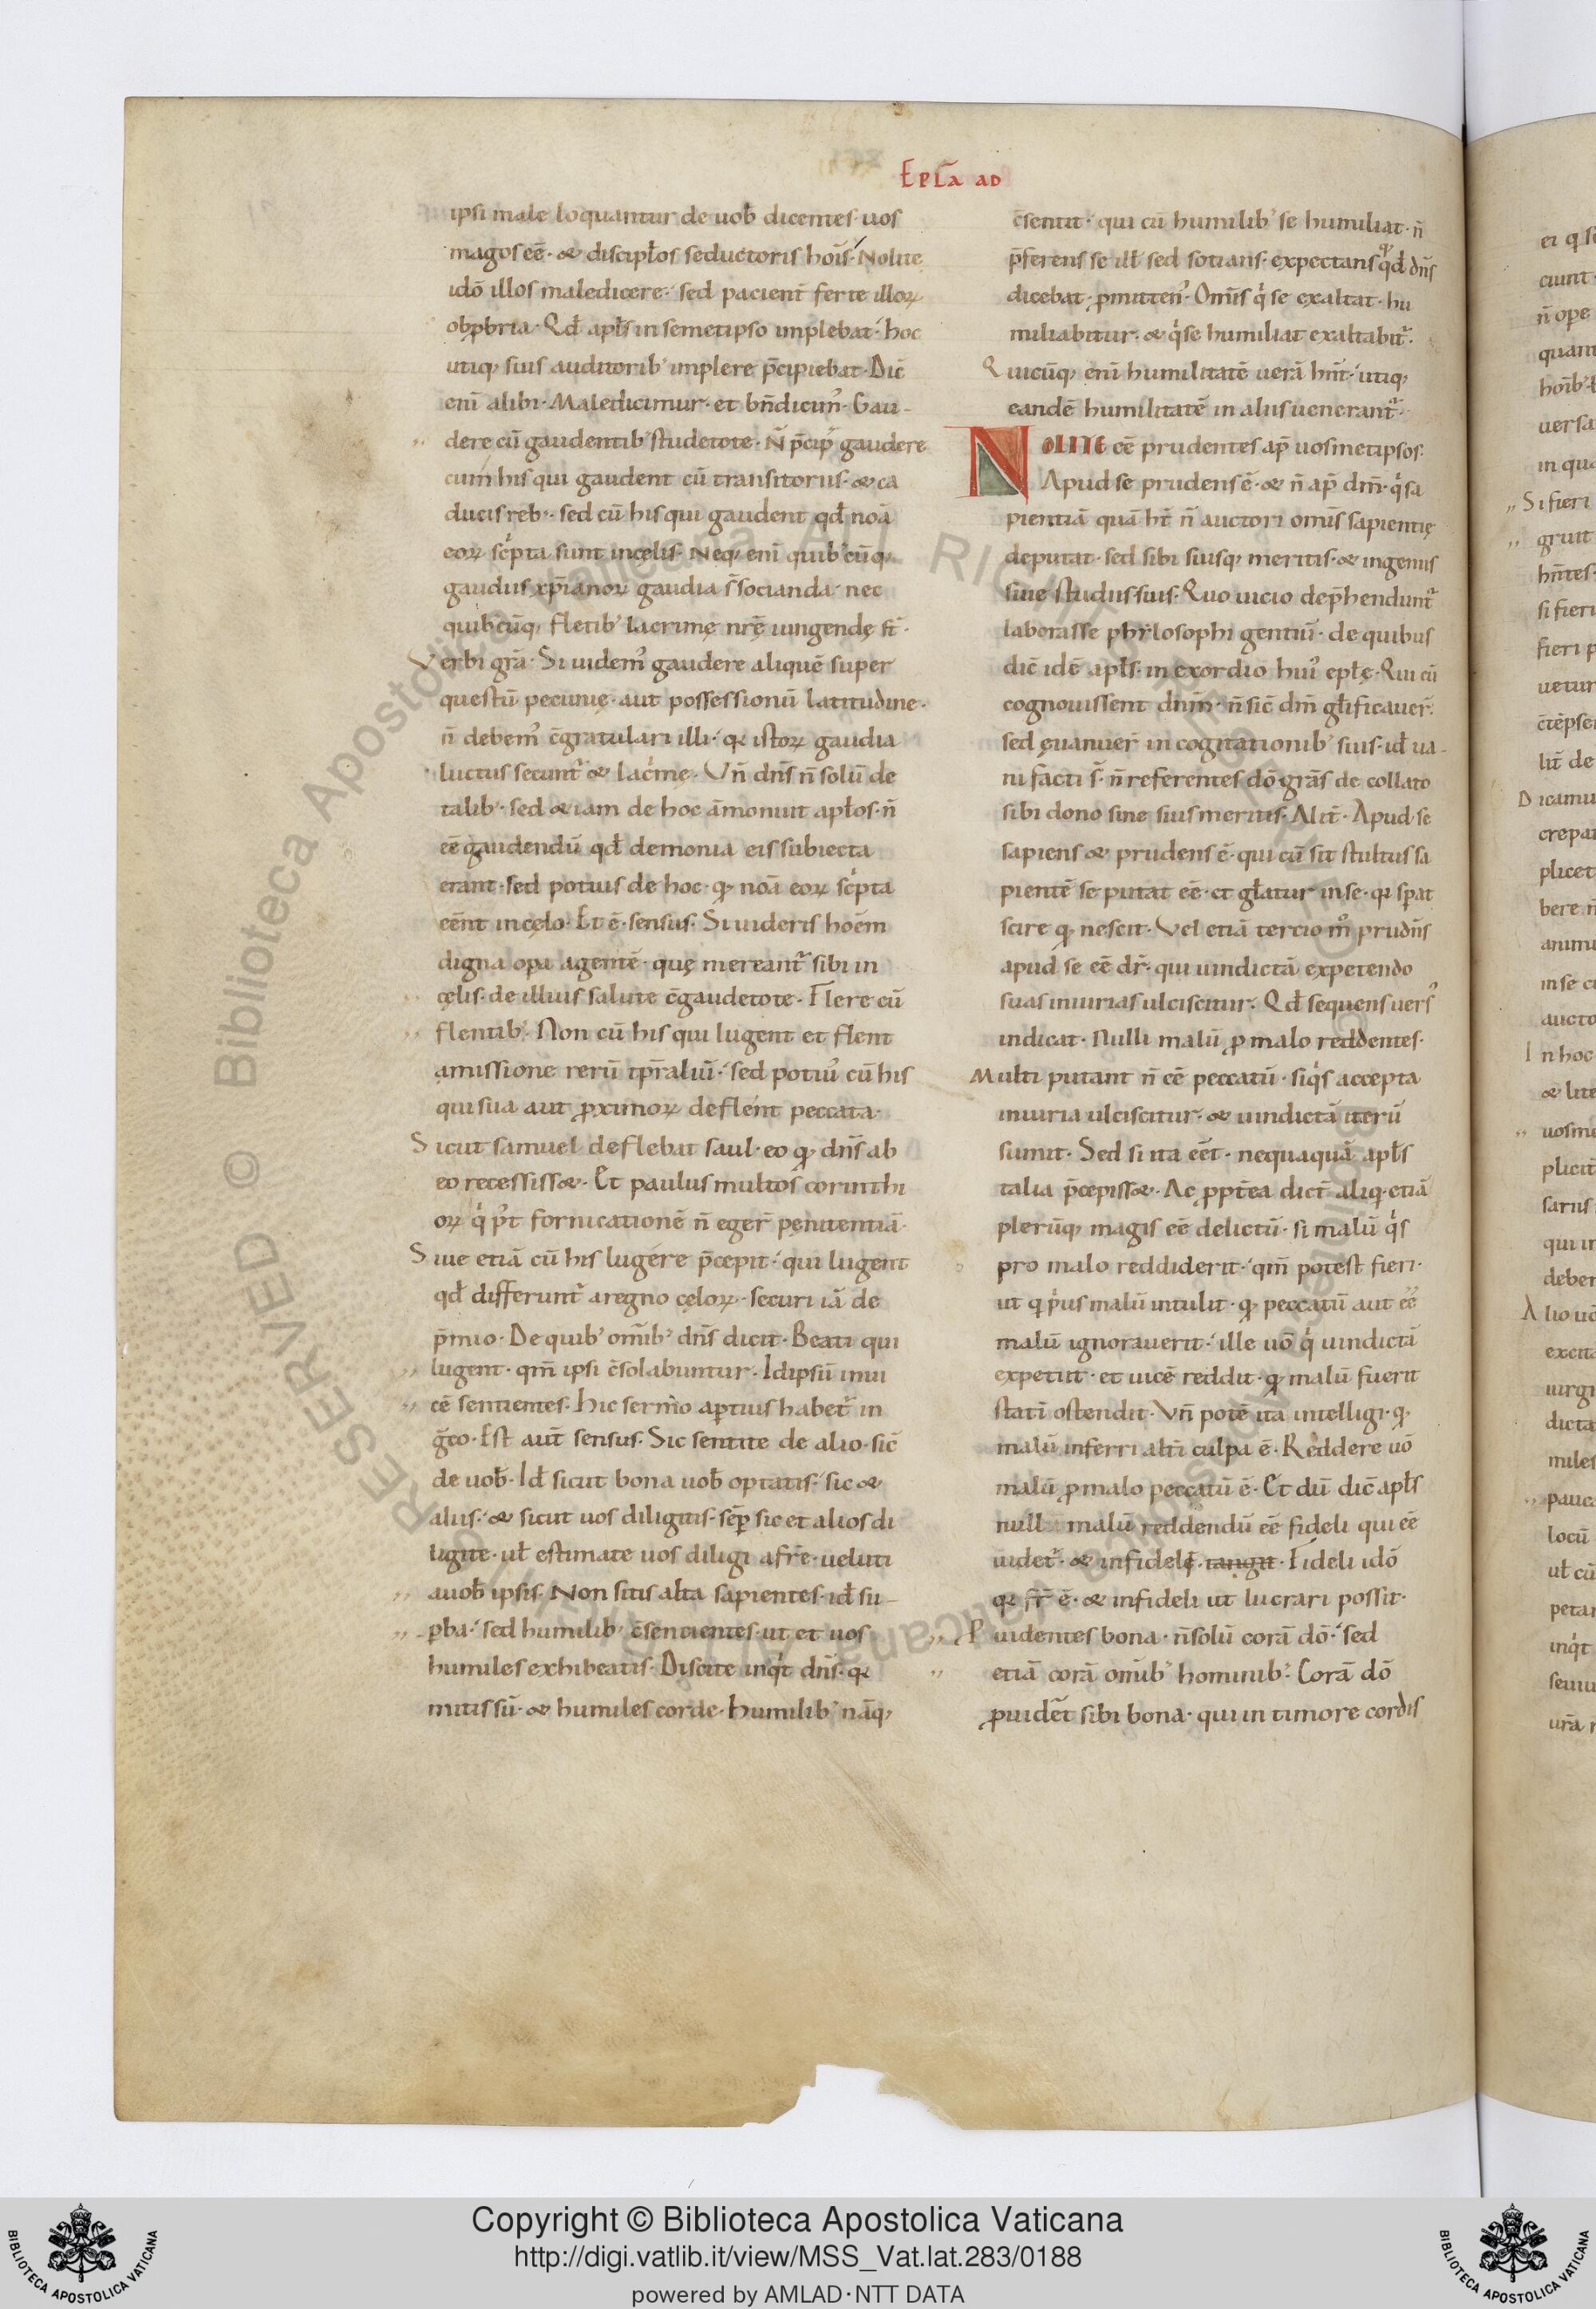 Epl̄a ad
ipsi male loquantur de uob̄ dicentes· uos
magos eē· & discipl̄os seductoris hoīs· Nolite
idō illos maledicere· sed pacient̄ ferte illoꝝ
obp̱bria· Qd̄ apl̄s in semetipso implebat· hoc
utiq; suis auditorib' implere p̄cipiebat· Dic̄
eni alibi· Maledicimur· et bn̄dicim'· Gau-
dere cū gaudentib' studetote· N̄ p̄cip̱ gaudere
cum his qui gaudent cū transitoriis· & ca
ducis reb'· sed cū his qui gaudent qd̄ noā
eoꝝ sc̍pta sunt in cęlis· Neq; enī quib'cūq;
gaudiis xp̄ianoꝝ gaudia s̄ socianda· nec
quib'cūq; fletib' lacrimę nr̄ę iungendę st̄·
Verbi grā· Si uidem' gaudere aliquē super
questū pecunię· aut possessionū latitudine·
n̄ debem' c̄gratulari illi· qꝛ istoꝝ gaudia
luctus secunt᷑ & lac̍mę· Vn̄ dn̄s n̄ solū de
talib'· sed & iam de hoc āmonuit apl̄os· n̄
eē gaudendū qd̄ demonia eis subiecta
erant· sed potius de hoc· ꝙ noā eoꝝ sc̍pta
eēnt in cęlo· Et ē· sensus· Si uideris hoēm
digna opa agentē· quę mereant᷑ sibi in
cęlis· de illius salute c̄gaudetote· Flere cū
flentib'· Non cū his qui lugent et flent
amissione rerū tp̄raliū· sed potiu' cū his
qui sua aut ꝓximoꝝ deflent peccata·
Sicut samuel deflebat saul· eo ꝙ dn̄s ab
eo recessiss&· Et paulus multos corinthi
oꝝ q̍ p't fornicationē n̄ eger̄ penitentiā·
Siue etiā cū his lugere p̄cepit· qui lugent
qd̄ differunt᷑ a regno cęloꝝ· securi iā de
p̄mio· De quib' om̄ib' dn̄s dicit· Beati qui
lugent· qm̄ ipsi c̄solabuntur· Idipsū inui
cē sentientes· Hic sermo aptius habet᷑ in
g̃co· Est aut̄ sensus· Sic sentite de alio· sic̄
de uob̄· Id̄ sicut bona uob̄ optatis· sic &
aliis· & sicut uos diligitis· sēp̱ sic et alios di
ligite· ul̄ estimate uos diligi a fr̄e· ueluti
a uob̄ ipsis· Non sitis alta sapientes· id̄ su-
p̱ba· sed humilib' c̄sentientes· ut et uos
humiles exhibeatis· Discite inq̍t dn̄s· qꝛ
mitis sū· & humiles corde· Humilib' nāq;
c̄sentit· qui cū humilib' se humiliat· n̄
p̄ferens se ill̄ sed sotians· expectans qd̄ dn̄s
dicebat· ꝓmitten'· Om̄is q̍ se exaltat· hu
miliabitur· & q̍ se humiliat exaltabit᷑·
Quicūq; enī humilitatē uerā hn̄t· utiq;
eandē humilitatē in aliis uenerant᷑·
NOLITE eē prudentes ap̄ uosmetipsos·
Apud se prudens ē· & n̄ ap̄ dm̄· q̍ sa
pientiā quā ht̄ n̄ auctori om̄is sapientię
deputat· sed sibi suisq; meritis· & ingeniis
siue studiis suis· Quo uicio dep̄hendunt᷑
laborasse phylosophi gentiū· de quibus
dic̄ idē apl̄s· in exordio hui' epl̄ę· Qui cū
cognouissent dn̄m· n̄ sic̄ dm̄ gl̄ificauer̄·
sed euanuer̄ in cogitationib' suis· id̄ ua-
ni facti s̄· n̄ referentes dō grās de collato
sibi dono sine suis meritis· Alit̄· Apud se
sapiens & prudens ē· qui cū sit stultus sa
pientē se putat eē· et gl̄atur in se· qꝛ sp̱at
scire ꝙ nescit· Vel etiā tercio m° prudn̄s
apud se eē dr̄· qui uindictā expetendo
suas iniurias ulciscitur· Qd̄ sequens uers'
indicat· Nulli malū ꝓ malo reddentes·
Multi putant n̄ eē peccatū· siq̍s accepta
iniuria ulciscitur· & uindictā iterū
sumit· Sed si ita eēt· nequaquā apl̄s
talia p̄cepiss&· Ac ꝓpt̄ea dict̄ aliq· etiā
plerūq; magis eē delictū· si malū q̍s
pro malo reddiderit· qm̄ potest fieri·
ut q p̍us malū intulit· ꝙ peccatū aut eē
malū ignorauerit· ille uō q̍ uindictā
expetiit· et uicē reddit· ꝙ malū fuerit
statī ostendit· Vn̄ potē ita intelligi· ꝙ
malū inferri alt̄i culpa ē· Reddere uō
malū ꝓ malo peccatū ē· Et dū dic̄ apl̄s
null malū reddendū eē fideli qui eē
uidet᷑· & infideli· tangit· Fideli idō
qꝛ fr̄ ē· & infideli ut lucrari possit·
Puidentes bona· n̄ solū corā dō· sed
etiā corā om̄ib' hominib'· Corā dō
ꝓuidēt sibi bona· qui in timore cordis
Copyright © Biblioteca Apostolica Vaticana
http://digi.vatlib.it/view/MSS_Vat.lat.283/0188
powered by AMLAD·NTT DATA
BIBLIOTECA APOSTOLICA VATICANA
BIBLIOTECA APOSTOLICA VATICANA